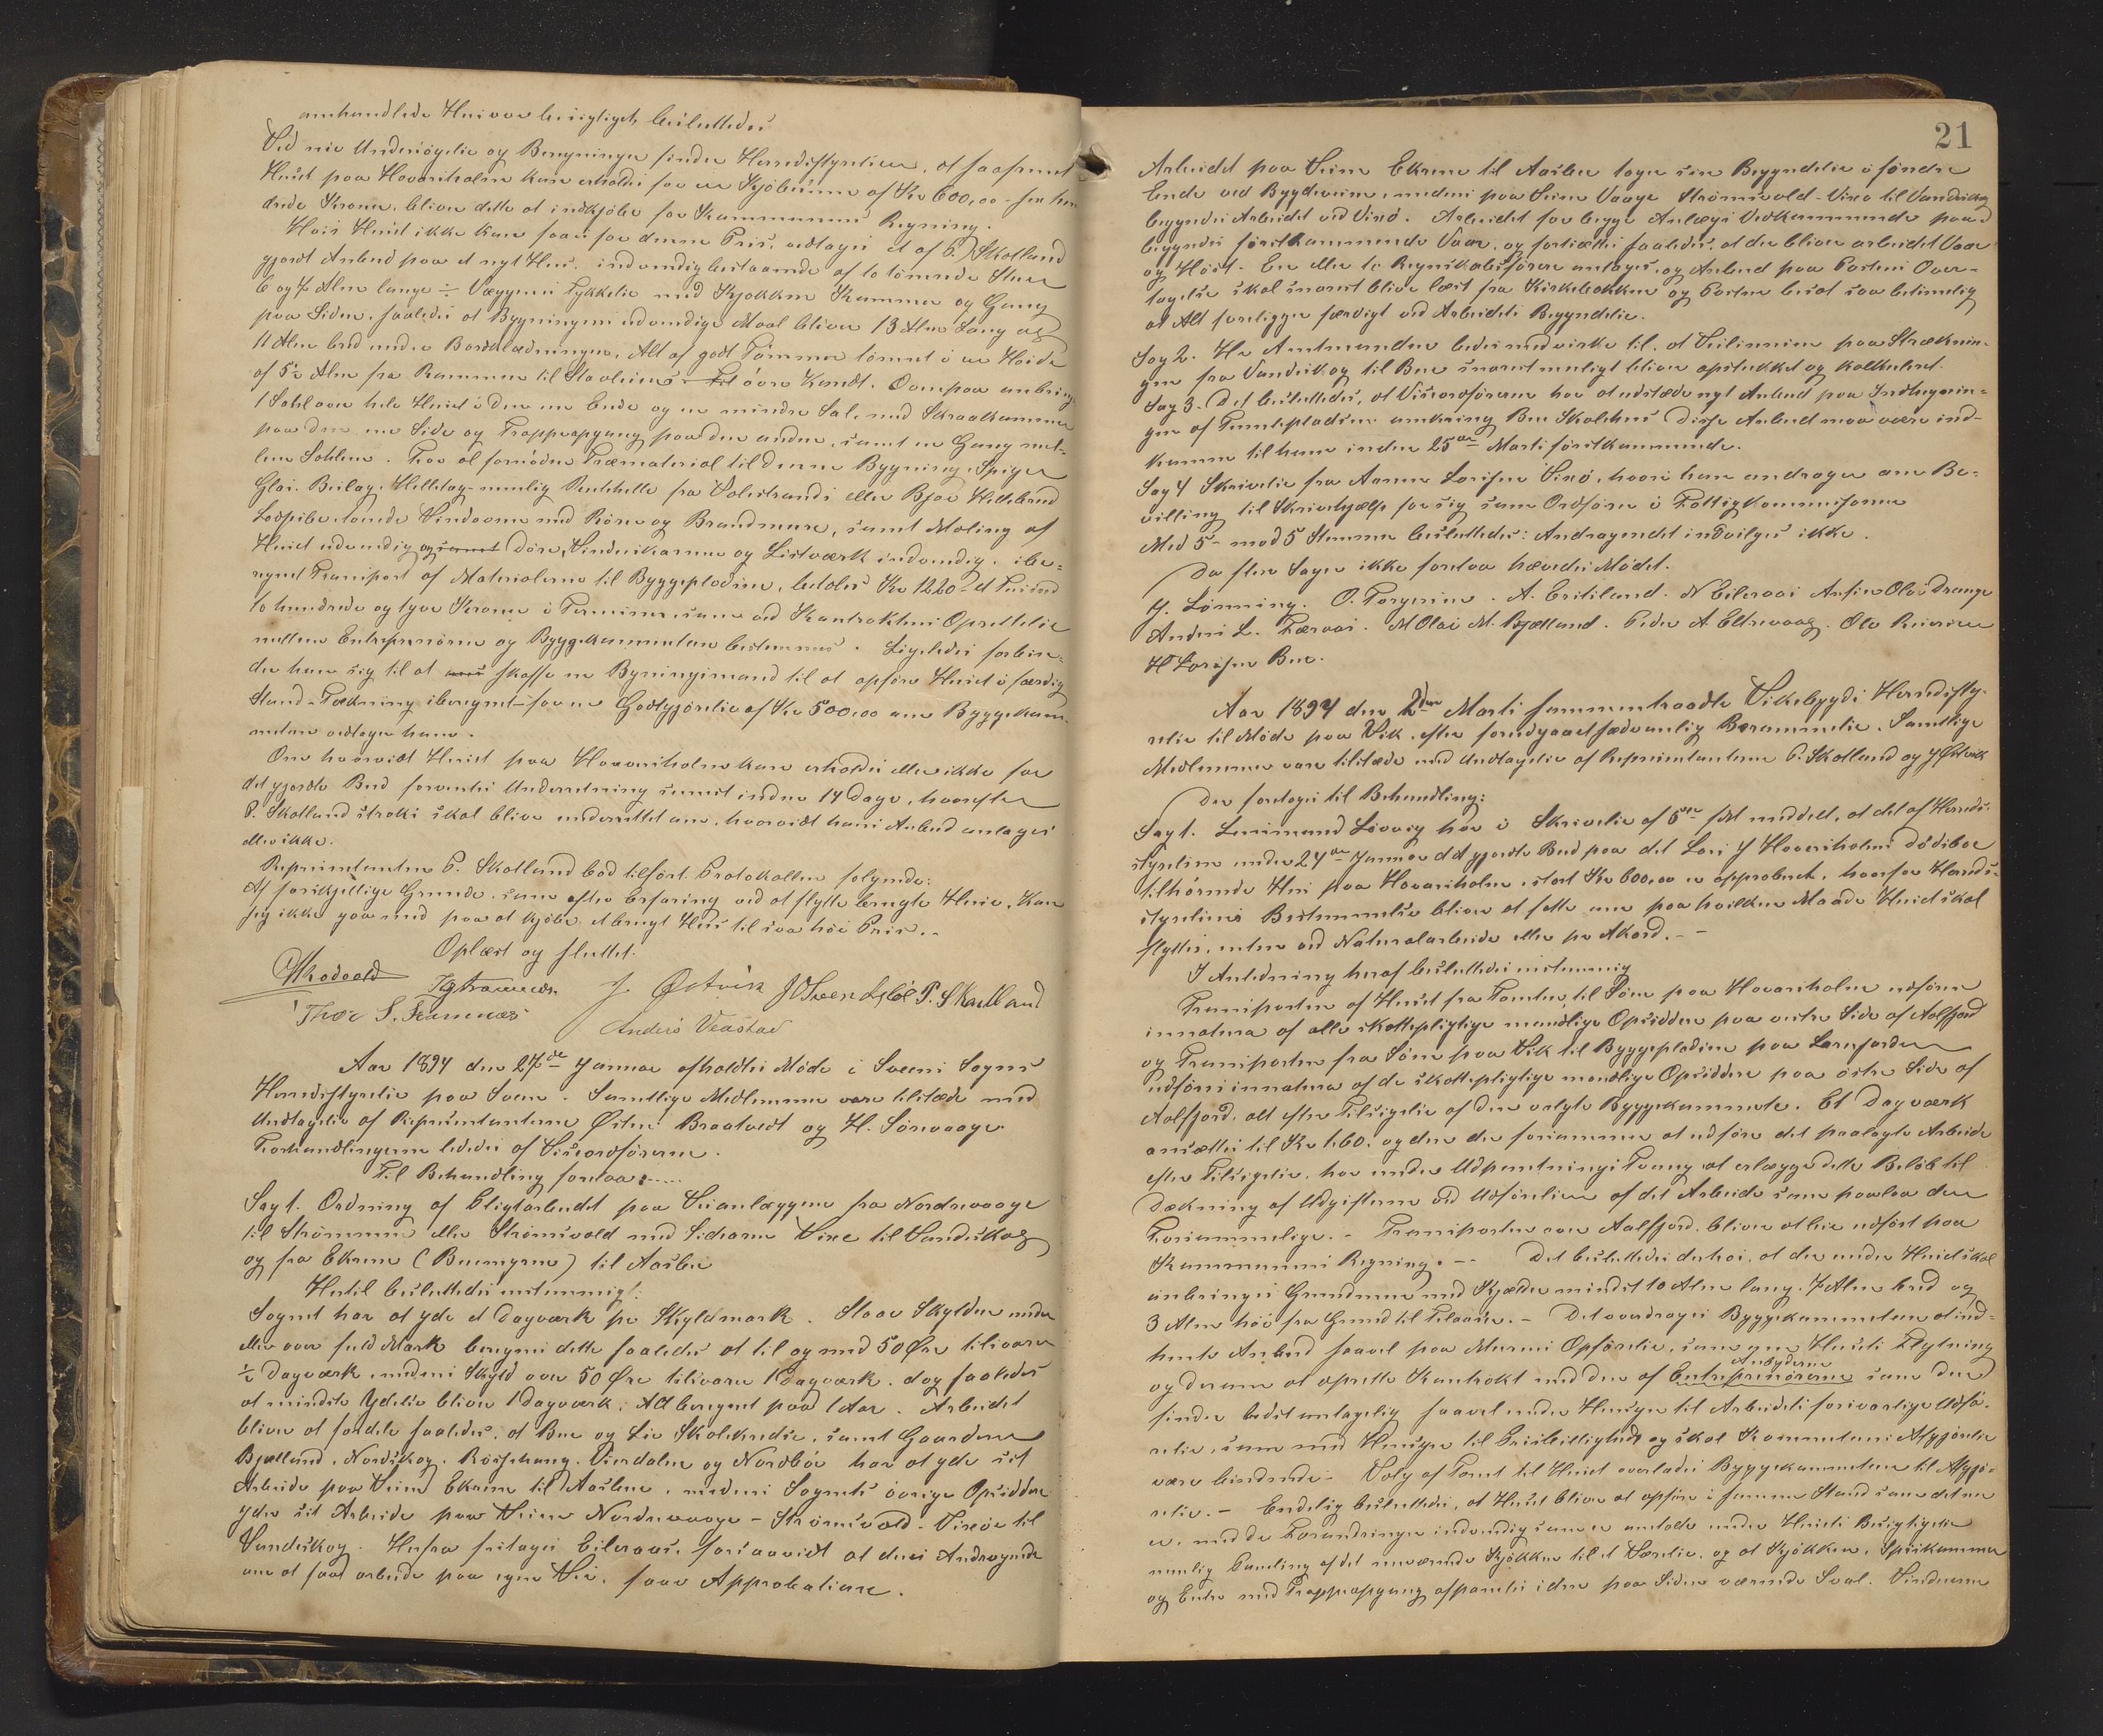 omhandlede Huse vor besigtiget, besluttedes
Ved nie Undersøgelse og Beregninger finder Herredsstyrelsen, at saafremt
Huset paa Hovarsholm kan erholdes for en Kjøbesum af Kr 600,00 - sex hun
drede Kroner, bliver dette at indkjøbe for Kommunens Regning.
Hvis Huset ikke kan faaes for denne Pris, vedtages et af P. Skolland
gjordt Anbud paa et nyt Hus, indvendig bestaaende af to tømrede Stuer
6 og 7 Alen lange ÷ Væggenes Tykkelse med Kjøkken Kammer og Gang
paa Siden, saaledes at Bygningens udvendige Maal bliver 13 Alen Lang og
11 Alen bred under Bordklædningen. Alt af godt Tømmer tømret i en Høide
af 5½ Alen fra Rammen til Stavleiens øvre Kandt. Ovenpaa anbringes
1 Sahl over hele Huset i den ene Ende og en mindre Sal med Skraakammer
paa den ene Side og Trappeopgang paa den anden, samt en Gang mel-
lem Sahlene. For al fornøden Træmaterial til denne Bygning, Spiger
Glas, Beslag, Helletag - nemlig Rudehelle fra Solestrand eller Bjoe Hellebrud
Lodpibe, Vinduerne med Røre og Brandmure, samt Maling af
Huset udvendig og samt Døre, Vindueskarme og Listværk indvendig, ibe-
regnet Transport af Materialerne til Byggepladsen, betales Kr 1220 - et Tusind
to hundrede og tyve Kroner i Terminer, som ved Kontraktens Oprettelse
mellem Entreprenøren og Byggekommiteen bestemmes. Ligeledes forbin-
der han sig til at skaffe en Bygningsmand til at opføre Huset i færdig
Stand - Tækning iberegnet - for en Godtgjørelse af Kr 500,00 om Byggekom-
miteen vedtager ham.
Om hvorvidt Huset paa Hovarsholm kan erholdes eller ikke for
det gjordte Bud forventes Underretning senest inden 14 Dage, hvorefter
P. Skolland straks skal blive underrettet om, hvorvidt hans Anbud antages
eller ikke.
Repræsentanten P. Skolland bad tilført Protokollen følgende:
Af forskjellige Grunde, som efter Erfaring ved at flytte brugte Huse, kan
jeg ikke gaa med paa at kjøbe et brugt Hus til saa høi Pris.
Oplæst og sluttet.
J. Østvik J O Svendsbøe P. Skolland
Thore S. Framnæs Anders Veastad
Aar 1894 den 27de Januar afholdtes Møde i Sveens Sogns
Herredsstyrelse paa Sveen. Samtlige Medlemmer vare tilstæde med
Undtagelse af Repræsentanterne Østen Braatveit og H. Sørvaage.
Forhandlingerne lededes af Viseordføreren.
Til Behandling forelaa:
Sag 1. Ordning af Pligtarbeidet paa Veianlæggene fra Nordrevaage
til Strømmen eller Strømsvold med Sidearm Vixe til Vandaskog
og fra Ekrene (Buemyrene) til Aasbu
Hertil besluttedes enstemmigt:
Sognet har at yde et Dagværk pr Skyldmark. Staar Skylden under
eller over fuld Mark beregnes dette saaledes at til og med 50 Øre tilsvarer
½ Dagværk, medens Skyld over 50 Øre tilsvarer 1 Dagværk, dog saaledes
at mindste Ydelse bliver 1 Dagværk, Alt beregnet paa 1 Aar. Arbeidet
bliver at fordele saaledes, at Bue og Lie Skolekredse, samt Gaardene
Bjelland, Nordskog, Rossehaug, Vierdalen og Nordbøe har at yde sit
Arbeide paa Veien Ekrene til Aasbue, medens Sognets øvrige Opsiddere
yder sit Arbeide paa Veien Nordrevaage - Strømsvold - Vixøe til
Vandaskog. Herfra fritages Eileraas, forsaavidt at deres Andragende
om at faa arbeide paa egen Vei, faar Approbation.
21
Arbeidet paa Veien Ekrene til Aasbu tager sin Begyndelse i søndre
Ende ved Bygdeveien, medens paa Veien Vaage Strømsvold - Vixe til Vandaskog
begyndes Arbeidet ved Vixø. Arbeidet for begge Anlægs Vedkommende paa-
begyndes førstkommende Vaar, og fortsættes saaledes, at der bliver arbeidet Vaar
og Høst. En eller to Regnskabsførere antages, og Anbud paa Postens Over-
tagelse skal snarest blive læst fra Kirkebakken og Posten besat saa betimelig
at Alt foreligger færdigt ved Arbeidets Begyndelse.
Sag 2. Hr Amtmanden bedes medvirke til, at Veilinien paa Stræknin-
gen fra Vandaskog til Bue snarest muligt bliver opstukket og kalkuleret.
Sag 3. Det besluttedes, at Viseordføreren har at udstæde nyt Anbud paa Indhegnin-
gen af Tomtepladsen omkring Bue Skolehus. Disse Anbud maa være ind-
komne til ham inden 25de Marts førstkommende.
Sag 4 Skrivelse fra Larsen Vixø, hvori han andrager om Be-
villing til Skrivehjælp for sig som Ordfører i Fattigkommisionen
Med 5 - mod 5 Stemmer besluttedes: Andragendet indvilges ikke.
Da flere Sager ikke forelaa hævedes Mødet.
J. Lønning. O. Torgersen. A. Erikland. N Eileraas Ansin Olas Drange
Anders L. Færaas. M Olai M. Bjelland. Peder A Eltrevaag. Ole
H Larsen Bue.
Aar 1894 den 2den Marts sammentraadte Vikebygds Herredssty-
relse til Møde paa Vik, efter forudgaaet sædvanlig Berammelse. Samtlige
Medlemmer vare tilstæde med Undtagelse af Repræsentanterne P. Skolland og J Østvik
Der foretoges til Behandling:
Sag 1. Lensmand Løvvig har i Skrivelse af 5te fdt meddelt, at det af Herreds-
styrelsen under 24de Januar d A gjordte Bud paa det Lars J Hovarsholms Dødsbo
tilhørende Hus paa Hovarsholm, stort Kr 600,00 er approberet, hvorfor Herreds-
styrelsens Bestemmelse bliver at fatte om paa hvilken Maade Huset skal
flyttes, enten ved Naturalarbeide eller pr Akord. --
I Anledning heraf besluttedes enstemmig
Transporten af Huset fra Tomten til Søen paa Hovarsholm udføres
innatura af alle skattepligtige mandlige Opsiddere paa vestre Side af Aalfjord
og Transporten fra Søen paa Vik til Byggepladsen paa
udføres innatura af de skattepligtige mandlige Opsiddere paa østre Side af
Aalfjord, alt efter Tilsigelse af den valgte Byggekommite. Et Dagværk
ansættes til Kr 1.60, og den der forsømmer at udføre det paalagte Arbeide
efter Tilsigelse, har under Udpantnings Tvang at erlægge dette Beløb til
Dækning af Udgifterne ved Udførelsen af det Arbeide som paalaa den
Forsømmelige. - Transporten over Aalfjord bliver at lade udført paa
Kommunens Regning. -- Det besluttedes derhos, at der under Huset skal
anbringes Grundmur med Kjælder mindst 10 Alen lang, 7 Alen bred og
3 Alen høi fra Grund til Tilaase. - Det overdrages Byggekommiteen at ind-
hente Anbud saavel paa Murens Opførelse, som Husets Flytning
og derom at oprette Kontrakt med den af Entreprenørerne Anbyderne som den
finder bedst antagelig saavel under Hensyn til Arbeidets forsvarlige Udfø-
relse, som med Hensyn til Prisbillighed og skal Kommiteens Afgjørelse
være bindende - Valg af Tomt til Huset overlades Byggekommiteen til Afgjø-
relse. - Endelig besluttedes, at Huset bliver at opføre i samme Stand som det nu
er, med de Forandringer indvendig som er omtalt under Husets Besigtigelse
nemlig Paneling af det nuværende Kjøkken til et Værelse, og at Kjøkken, Spisekammer
og Entre med Trappeopgang afpanles i den paa Siden værende Sval. Vinduerne